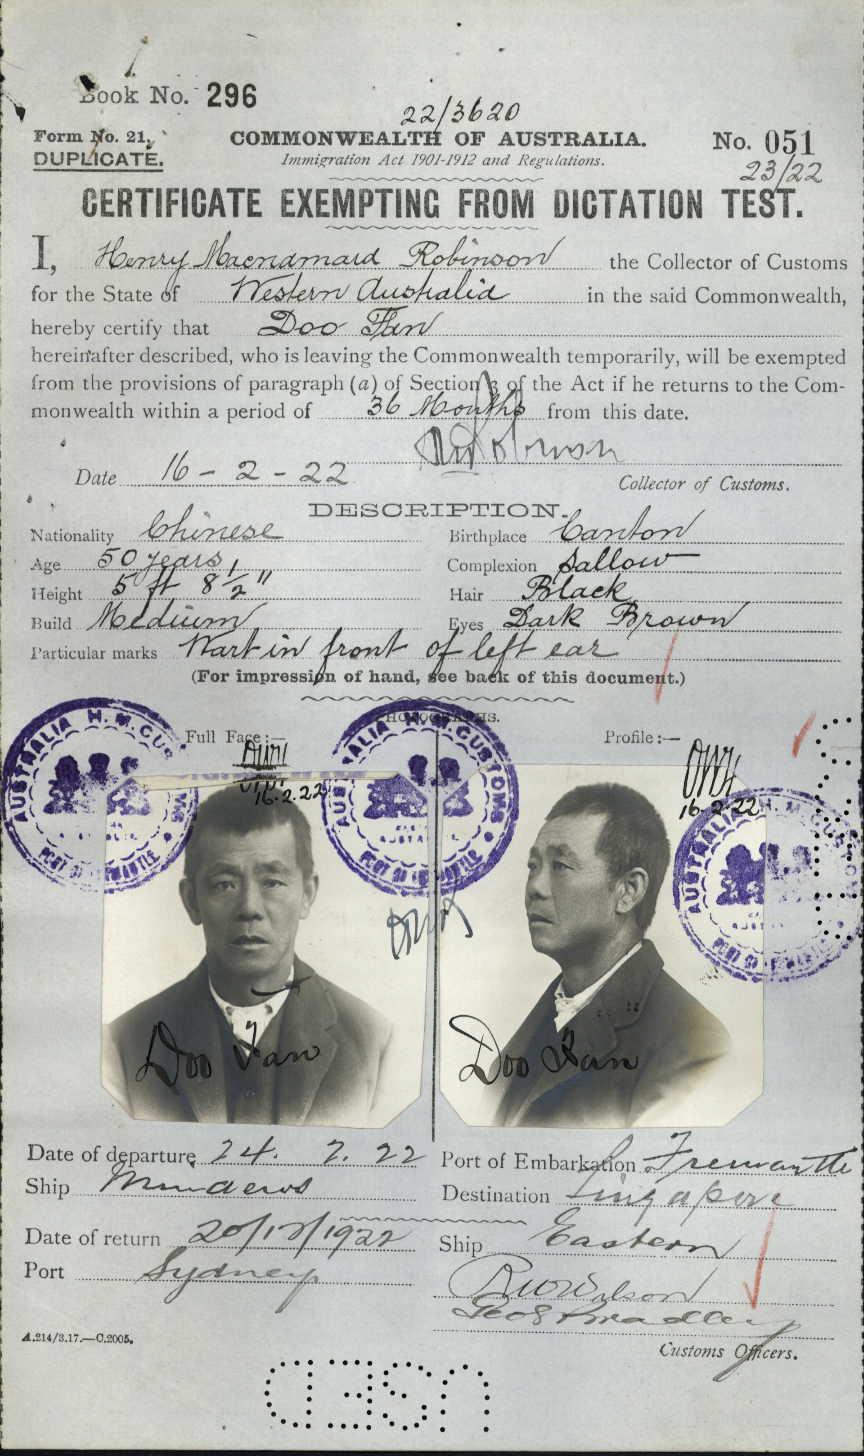 Book No. 296
22/3620
Form No. 21. COMMONWEALTH OF AUSTRALIA. No. 051
DUPLICATE. Immigration Act 1901-1912 and Regulations. 23/22
CERTIFICATE EXEMPTING FROM DICTATION TEST.
I, Henry Macnamara Robinson the Collector of Customs
for the State of Western Australia in the said Commonwealth,
hereby certify that Doo Fan
hereinafter described, who is leaving the Commonwealth temporarily, will be exempted
from the provisions of paragraph (a) of Section 3 of the Act if he returns to the Com-
monwealth within a period of 36 Months from this date.
Robinson
Date 16 - 2 - 22 Collector of Customs.
DESCRIPTION.
Nationality Chinese Birthplace Canton
Age 50 years Complexion Sallow
Height 5 ft 8 1/2" Hair Black
Build Medium Eyes Dark Brown
Particular marks Wart in front of left ear
(For impression of hand, see back of this document.)
PHOTOGRAPHS.
Full Face:— Profile:—
16.2.22 16.2.22
AUSTRALIA H.M. CUSTOMS
PORT OF FREMANTLE
AUSTRALIA H.M. CUSTOMS
PORT OF FREMANTLE
AUSTRALIA H.M. CUSTOMS
Doo Fan Doo Fan
Date of departure 24. 2. 22 Port of Embarkation Fremantle
Ship Minderoo Destination Singapore
Date of return 20/12/1922 Ship Eastern
Port Sydney
Geo S Bradley
A.214/3.17.—C.2005. Customs Officers.
USED